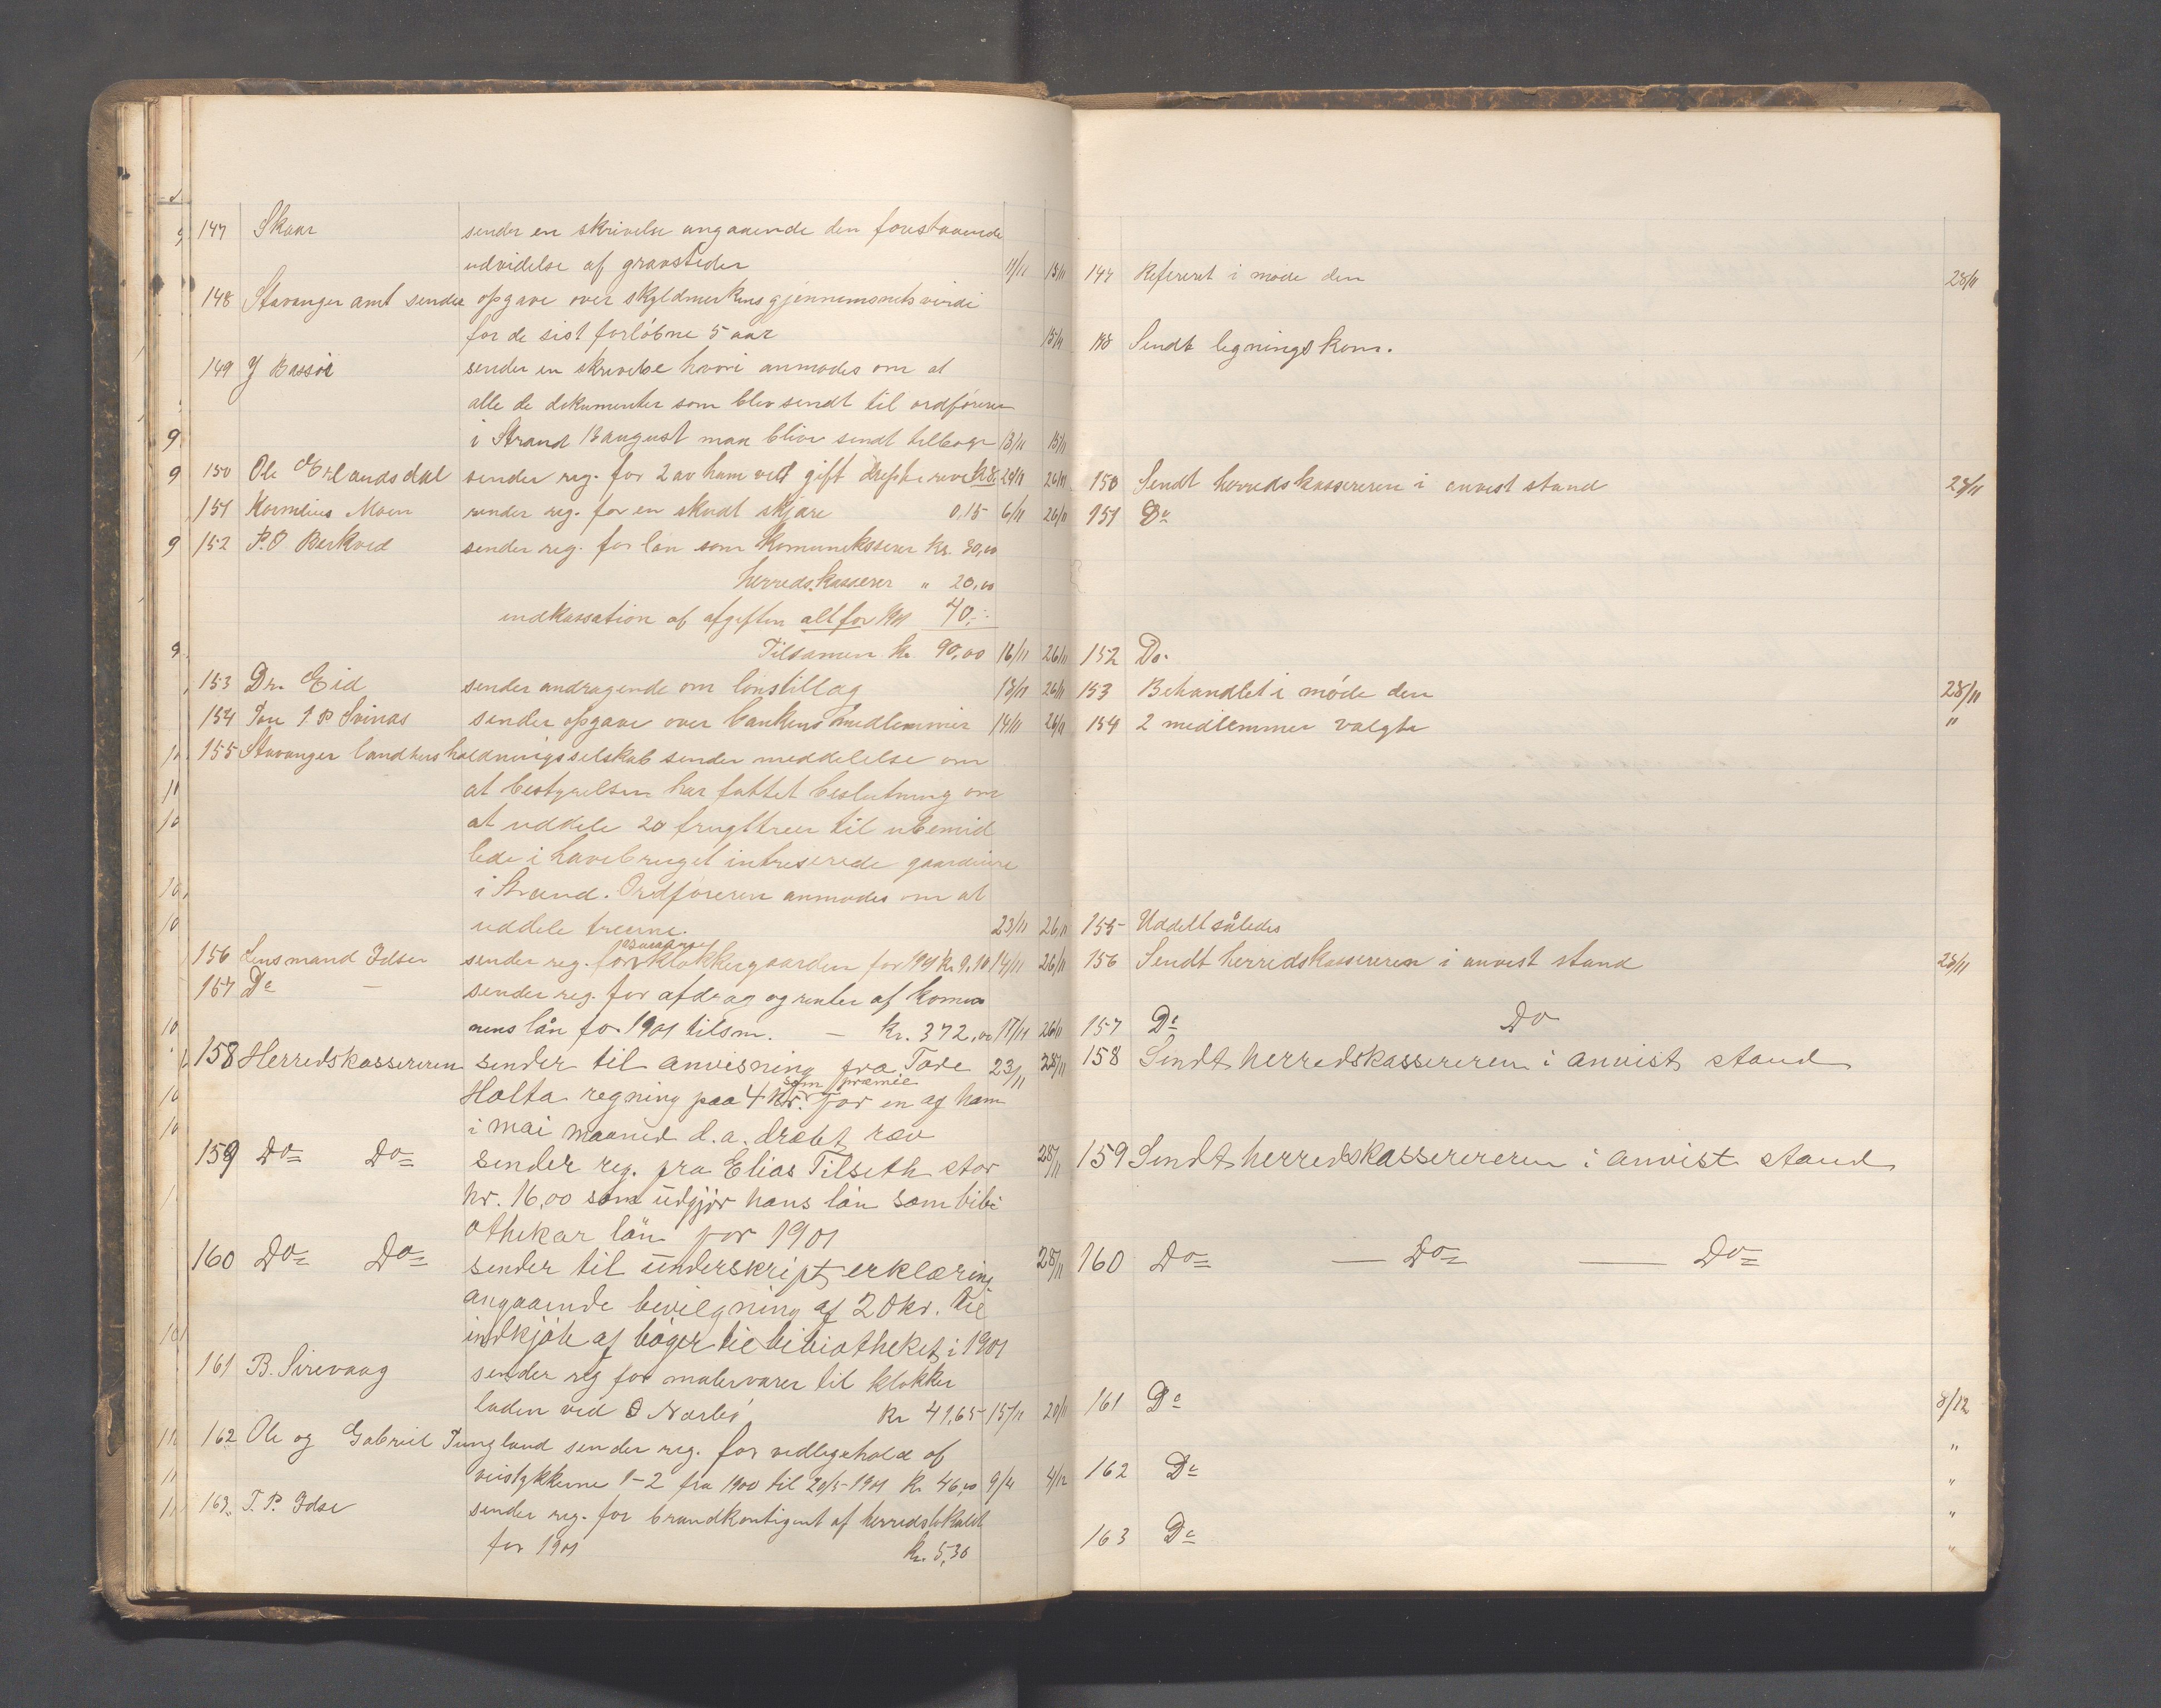 147 Skaar sender en skrivelse angaaende den forestaaende
udvidelse af gravsteder 11/11 13/11
148 Stavanger amt sender opgave over skyldmerkens gjennemsnits verdi
for de sist forløbne 5 aar 15/11
149 J Bassøe sender en skrivelse hvori anmodes om at
alle de dokumenter som blev sendt til ordføreren
i Strand 13 august maa blive sendt tilbage 13/11 15/11
150 Ole Erlandsdal sender reg. for 2 av ham ved gift dræpte reve k 8. 20/11 26/11
151 Kornelius Moen sender reg. for en skudt skjære 0,15 6/11 26/11
152 P. O Berkved sender reg. for løn som Komunekasserer kr. 30,00
herredskasserer " 20,00
indkassation af afgiften alt for 1901 40,-
Tilsamen kr 90,00 16/11 26/11
153 Dr. Eid sender andragende om lønstillæg 18/11 26/11
154 Jon S. P Svinas sender opgave over bankens medlemmer 14/11 26/11
155 Stavanger landhusholdningsselskab sender meddelelse om
at bestyrelsen har fattet beslutning om
at uddele 20 frugttreer til ubemid
lede i havebruget intreserede gaardeiere
i Strand. Ordføreren anmodes om at
uddele treerne. 23/11 26/11
156 Lensmand Idse sender reg. for assurance klokkergaarden for 1901 kr. 9,10 14/11 26/11
157 Do — sender reg. for afdrag og renter af komu
nens lån for 1901 tilsm. — kr. 372,00 17/11 26/11
158 Herredskassereren sender til anvisning fra Tore 23/11 28/11
Holta regning paa 4 kr. som præmie for en af ham
i mai maaned d.a. dræbt ræv
159 Do= Do= sender reg. fra Elias Tilseth stor 28/11
kr. 16,00 som udgjør hans løn som bibi
othekar løn for 1901
160 Do= Do= sender til underskript erklæring 28/11
angaaende bevilgning af 20 kr. til
indkjøb af bøger til bibiotheket i 1901
161 B. Sirevaag sender reg for malervarer til klokker
laden ved O Nærbø kr 41,65 15/11 20/11
162 Ole og Gabriel Tungland sender reg. for vedligehold af
veistykkerne 1-2 fra 1900 til 20/5-1901 kr 46,00 9/11 4/12
163. T. P. Idse sender reg. for brandkontigent af herredslokalet
for 1901 kr. 5,30
147 Refereret i møde den 28/11
148 Sendt ligningskom.
150 Sendt herredskassereren i anvist stand 28/11
151 Do
152 Do.
153 Behandlet i møde den 28/11
154 2 medlemmer valgte "
155 Uddelt således
156 Sendt herredskassereren i anvist stand 28/11
157 Do Do
158 Sendt herredskassereren i anvist stand
159 Sendt herredskasserereren i anvist stand
160 Do= — Do= — Do=
161 Do 8/12
"
162 Do "
"
163 Do "